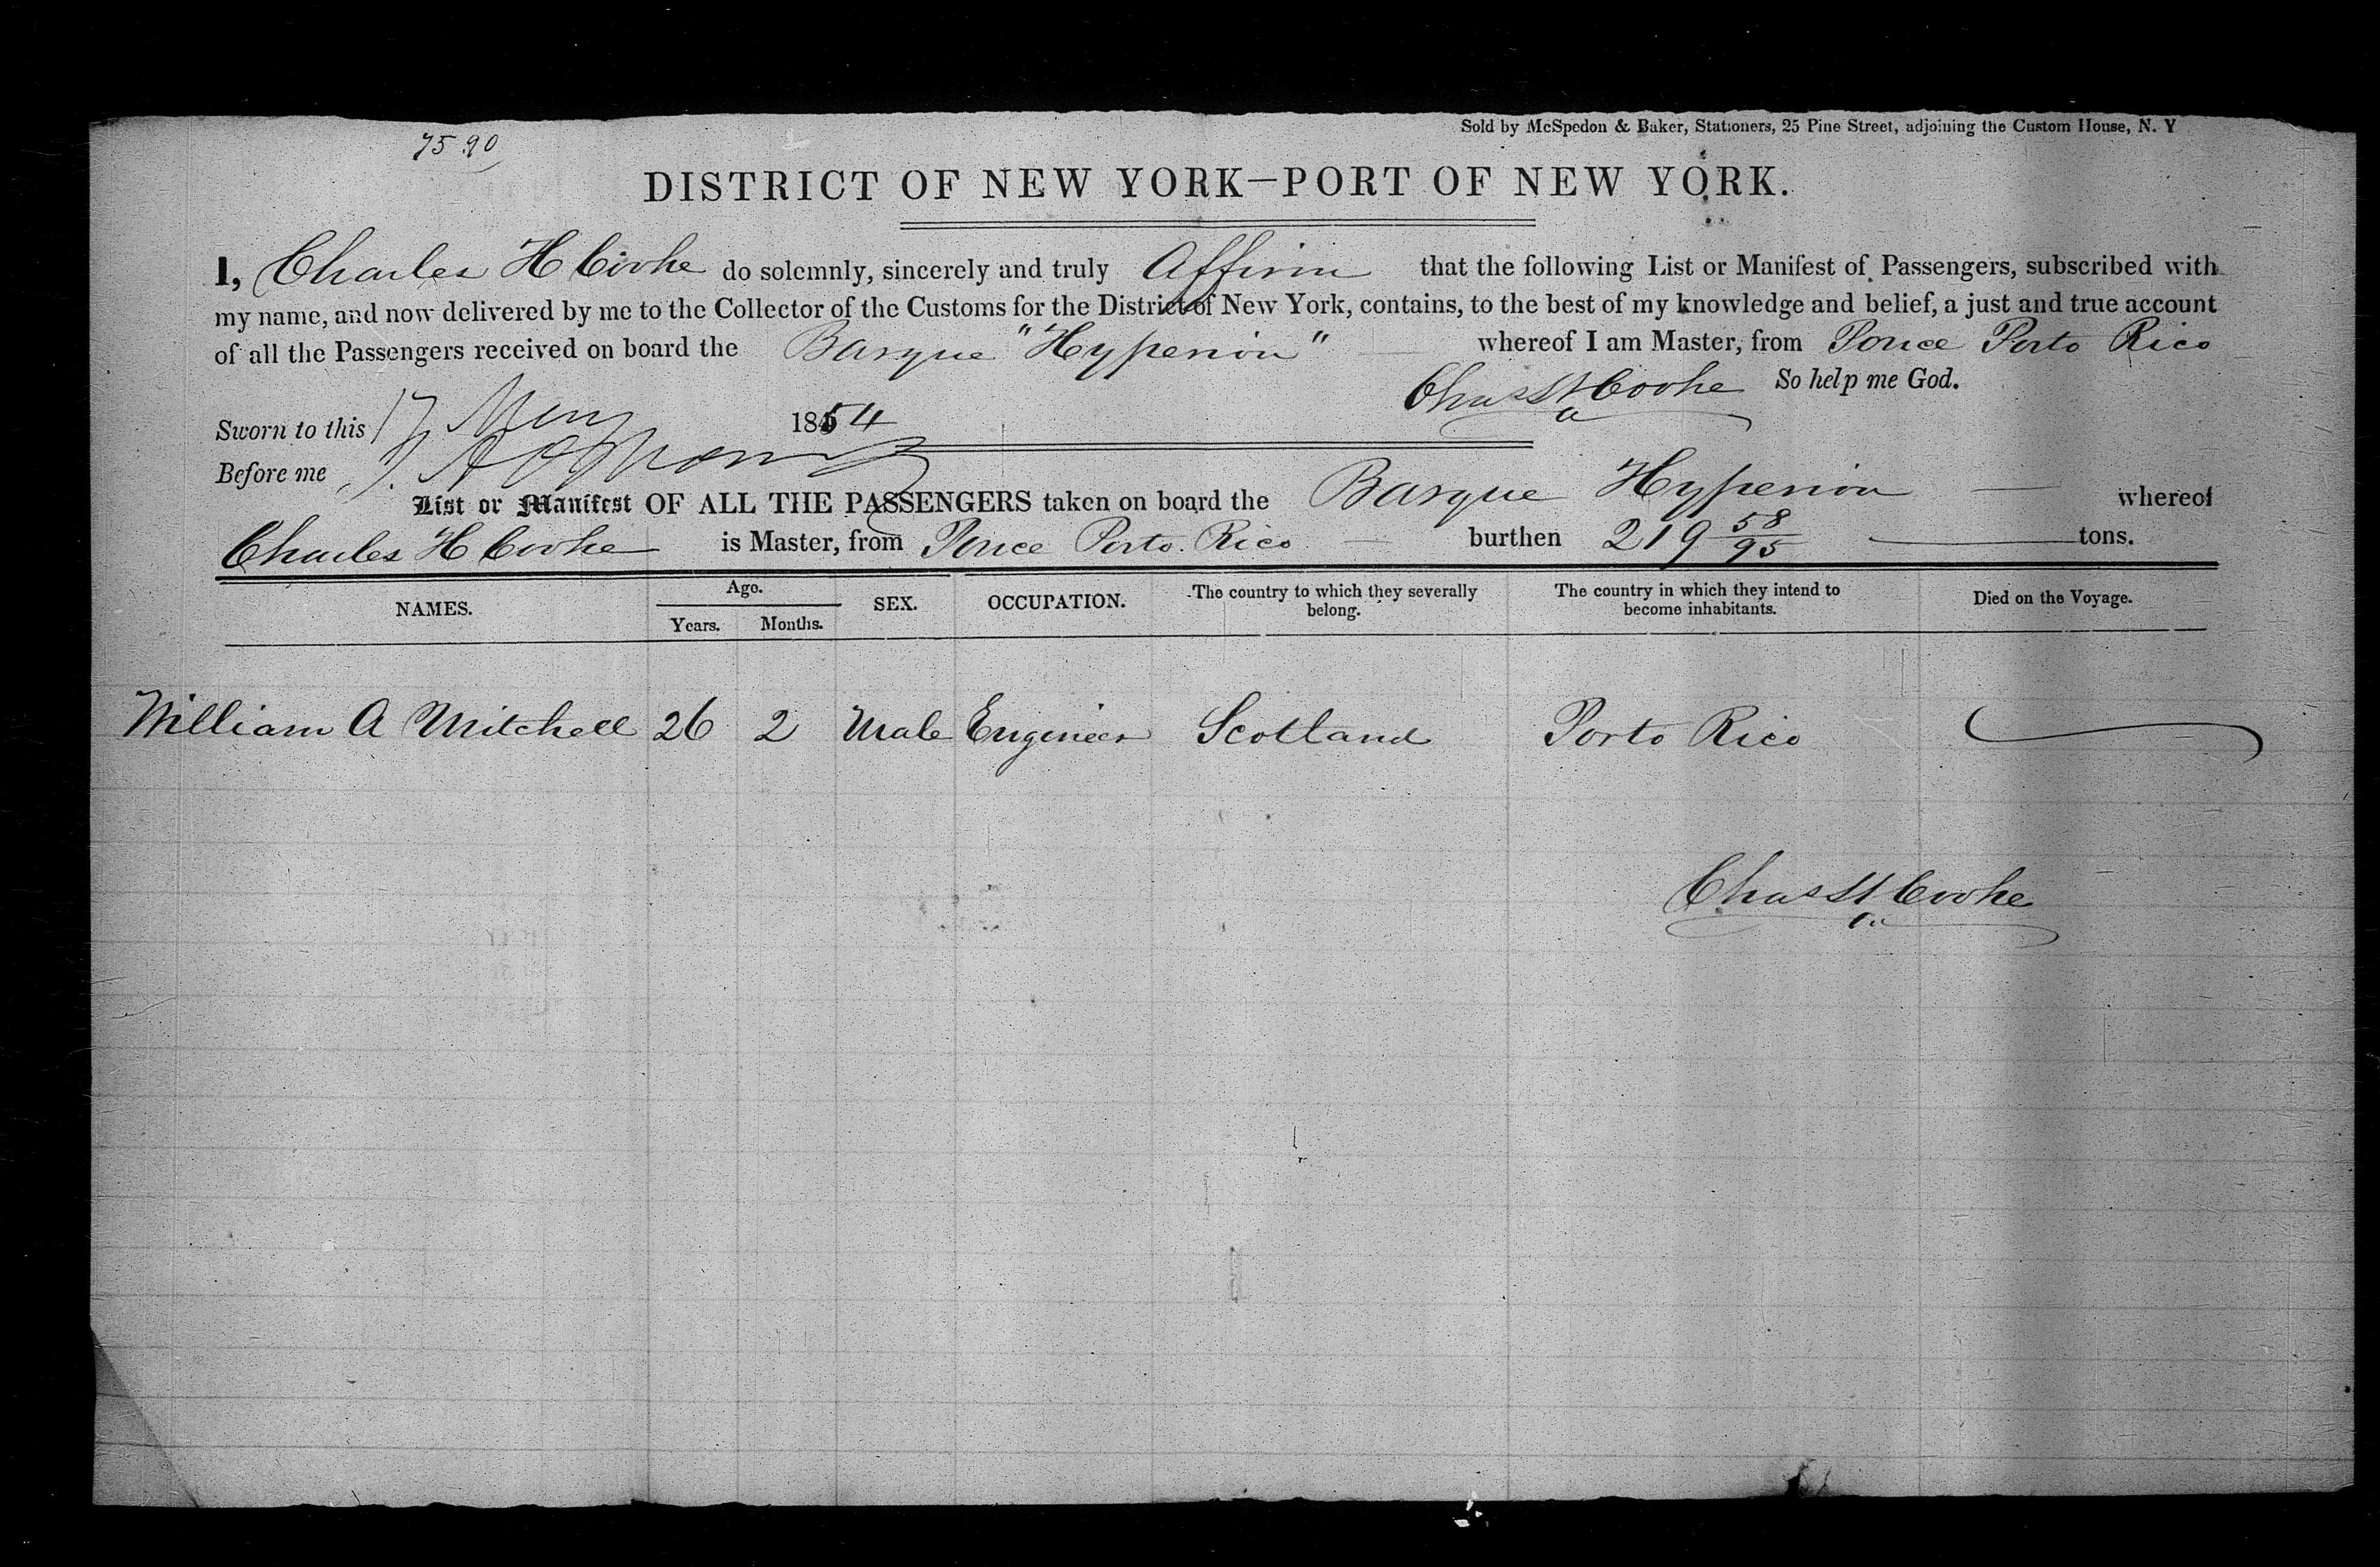 Sold by McSpedon & Baker, Stationers, 25 Pine Street, adjoining the Custom House, N. Y
75 90
DISTRICT OF NEW YORK—PORT OF NEW YORK.
I, Charles H Cooke do solemnly, sincerely and truly Affirm that the following List or Manifest of Passengers, subscribed with
my name, and now delivered by me to the Collector of the Customs for the District of New York, contains, to the best of my knowledge and belief, a just and true account
of all the Passengers received on board the Barque "Hyperion" whereof I am Master, from Ponce Porto Rico
Chas H Cooke So help me God.
Sworn to this 17 May 1854
Before me
List or Manifest OF ALL THE PASSENGERS taken on board the Barque Hyperion — whereof
Charles H Cooke is Master, from Ponce Porto Rico — burthen 219 58/95 — tons.
NAMES. Age. Years. Months. SEX. OCCUPATION. The country to which they severally belong. The country in which they intend to become inhabitants. Died on the Voyage.
William A Mitchell 26 2 Male Engineer Scotland Porto Rico
Chas H Cooke